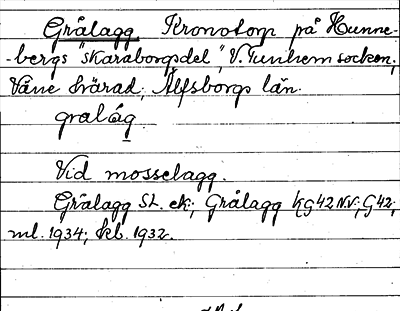 Grålagg Kronotorp på Hunne-
-bergs "skaraborgsdel", V. Tunhem socken,
Väne härad, Älfsborgs län.
gralág
Vid mosselagg.
Grålagg SL. ek; Grålagg KG42NV; G42;
ml. 1934; kbl. 1932.